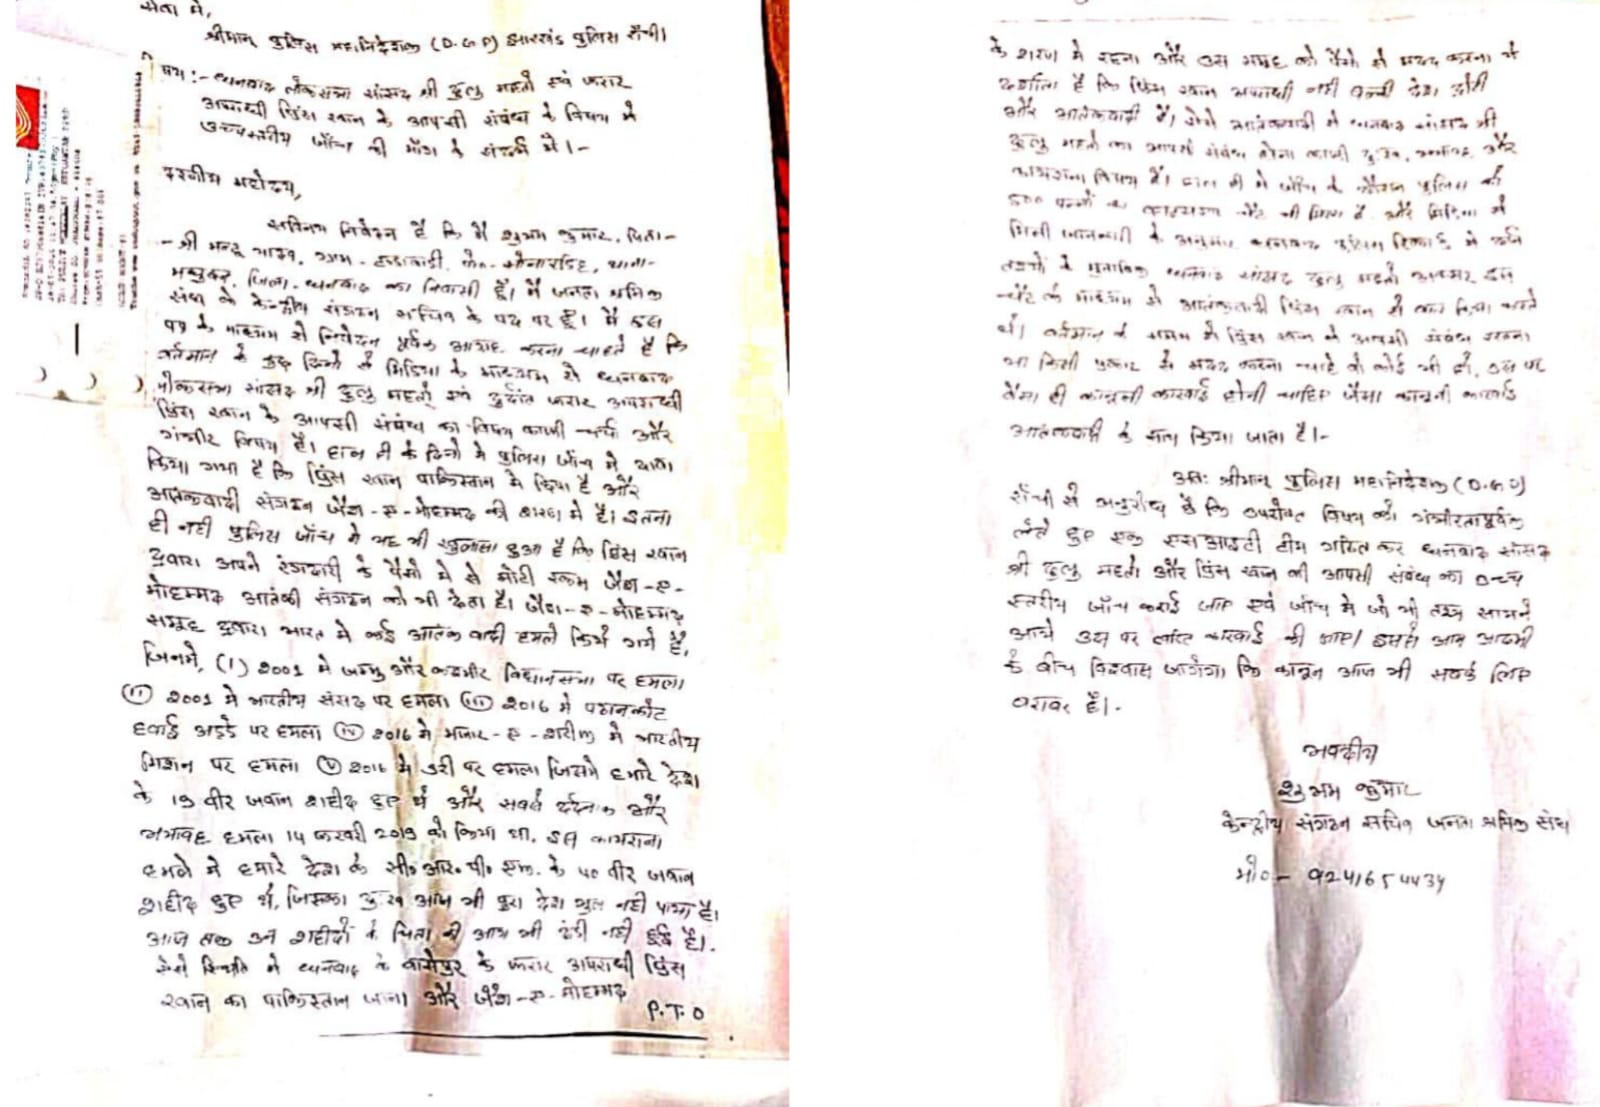 सेवा में,
श्रीमान् पुलिस महानिदेशक (D.G.P) झारखंड पुलिस राँची।
विषय :- धनबाद लोकसभा सांसद श्री ढुलु महतो एवं फरार
अपराधी प्रिंस खान के आपसी संबंध के विषय में
उच्चस्तरीय जाँच की माँग के संदर्भ में।-
महोदय,
सविनय निवेदन है कि मैं शुभम कुमार, पिता-
-श्री मन्टू यादव, ग्राम- पो०- सोनारडिह, थाना-
मधुबन, जिला- धनबाद का निवासी हूँ। मैं जनता श्रमिक
संघ के केन्द्रीय संगठन सचिव के पद पर हूँ। मैं इस
पत्र के माध्यम से निवेदन पूर्वक आग्रह करना चाहते है कि
वर्तमान के कुछ दिनों से मिडिया के माध्यम से धनबाद
लोकसभा सांसद श्री ढुलु महतो एवं दुर्दांत फरार अपराधी
प्रिंस खान के आपसी संबंध का विषय काफी चर्चा और
गंभीर विषय है। हाल ही के दिनों में पुलिस जाँच में दावा
किया गया है कि प्रिंस खान पाकिस्तान में छिपा है और
आतंकवादी संगठन जैश-ए-मोहम्मद की शरण में है। इतना
ही नहीं पुलिस जाँच में यह भी खुलासा हुआ है कि प्रिंस खान
द्वारा अपने रंगदारी के पैसों में से मोटी रकम जैश-ए-
मोहम्मद आतंकी संगठन को भी देता है। जैश-ए-मोहम्मद
समूह द्वारा भारत में कई आतंकवादी हमले किये गये हैं,
जिनमें, (I) 2001 में जम्मु और कश्मीर विधानसभा पर हमला
(II) 2001 में भारतीय संसद पर हमला (III) 2016 में पठानकोट
हवाई अड्डे पर हमला (IV) 2016 में मजार-ए-शरीफ में भारतीय
मिशन पर हमला (V) 2016 में उरी पर हमला जिसमें हमारे देश
के 19 वीर जवान शहीद हुए थे और सबसे दर्दनाक और
भयावह हमला 14 फरवरी 2019 को किया था, इस कायराना
हमले में हमारे देश के सी० आर० पी० एफ० के 40 वीर जवान
शहीद हुए थे, जिसका दुःख आज भी पुरा देश भुल नहीं पाया है।
आज तक उन शहीदों के चिता की आग भी ठंडी नहीं हुई है।
ऐसे स्थिति में धनबाद के वासेपुर के फरार अपराधी प्रिंस
खान का पाकिस्तान जाना और जैश-ए-मोहम्मद
P.T.O
के शरण में रहना और उस समूह को पैसों से मदद करना ये
दर्शाता है कि प्रिंस खान अपराधी नहीं बल्की देश द्रोही
और आतंकवादी है। ऐसे आतंकवादी से धनबाद सांसद श्री
ढुलु महतो का आपसी संबंध होना काफी दुःखद, और
कायराना विषय है। हाल ही में जाँच के दौरान पुलिस को
500 पन्नों का चैट भी मिला है और मिडिया से
मिली जानकारी के अनुसार धनबाद पुलिस रिकार्ड में दर्ज
तथ्यों के मुताबिक धनबाद सांसद ढुलु महतो अक्सर इस
चैट के माध्यम से आतंकवादी प्रिंस खान से बात किया करते
थे। वर्तमान के समय में प्रिंस खान से आपसी संबंध रखना
या किसी प्रकार से मदद करना चाहे वो कोई भी हो, उस पर
वैसा ही कानूनी कारवाई होनी चाहिए जैसा कानूनी कारवाई
आतंकवादी के साथ किया जाता है।-
अतः श्रीमान् पुलिस महानिदेशक (D.G.P)
राँची से अनुरोध है कि उपरोक्त विषय को गंभीरतापूर्वक
लेते हुए एक एसआइटी टीम गठित कर धनबाद सांसद
श्री ढुलु महतो और प्रिंस खान की आपसी संबंध का उच्च
स्तरीय जाँच कराई जाए एवं जाँच में जो भी तथ्य सामने
आये उस पर त्वरित कारवाई की जाए। इससे आम आदमी
के बीच विश्वास जागेगा कि कानून आज भी सबके लिए
बराबर है।-
भवदीय
शुभम कुमार
केन्द्रीय संगठन सचिव जनता श्रमिक संघ
मो०- 9241654434